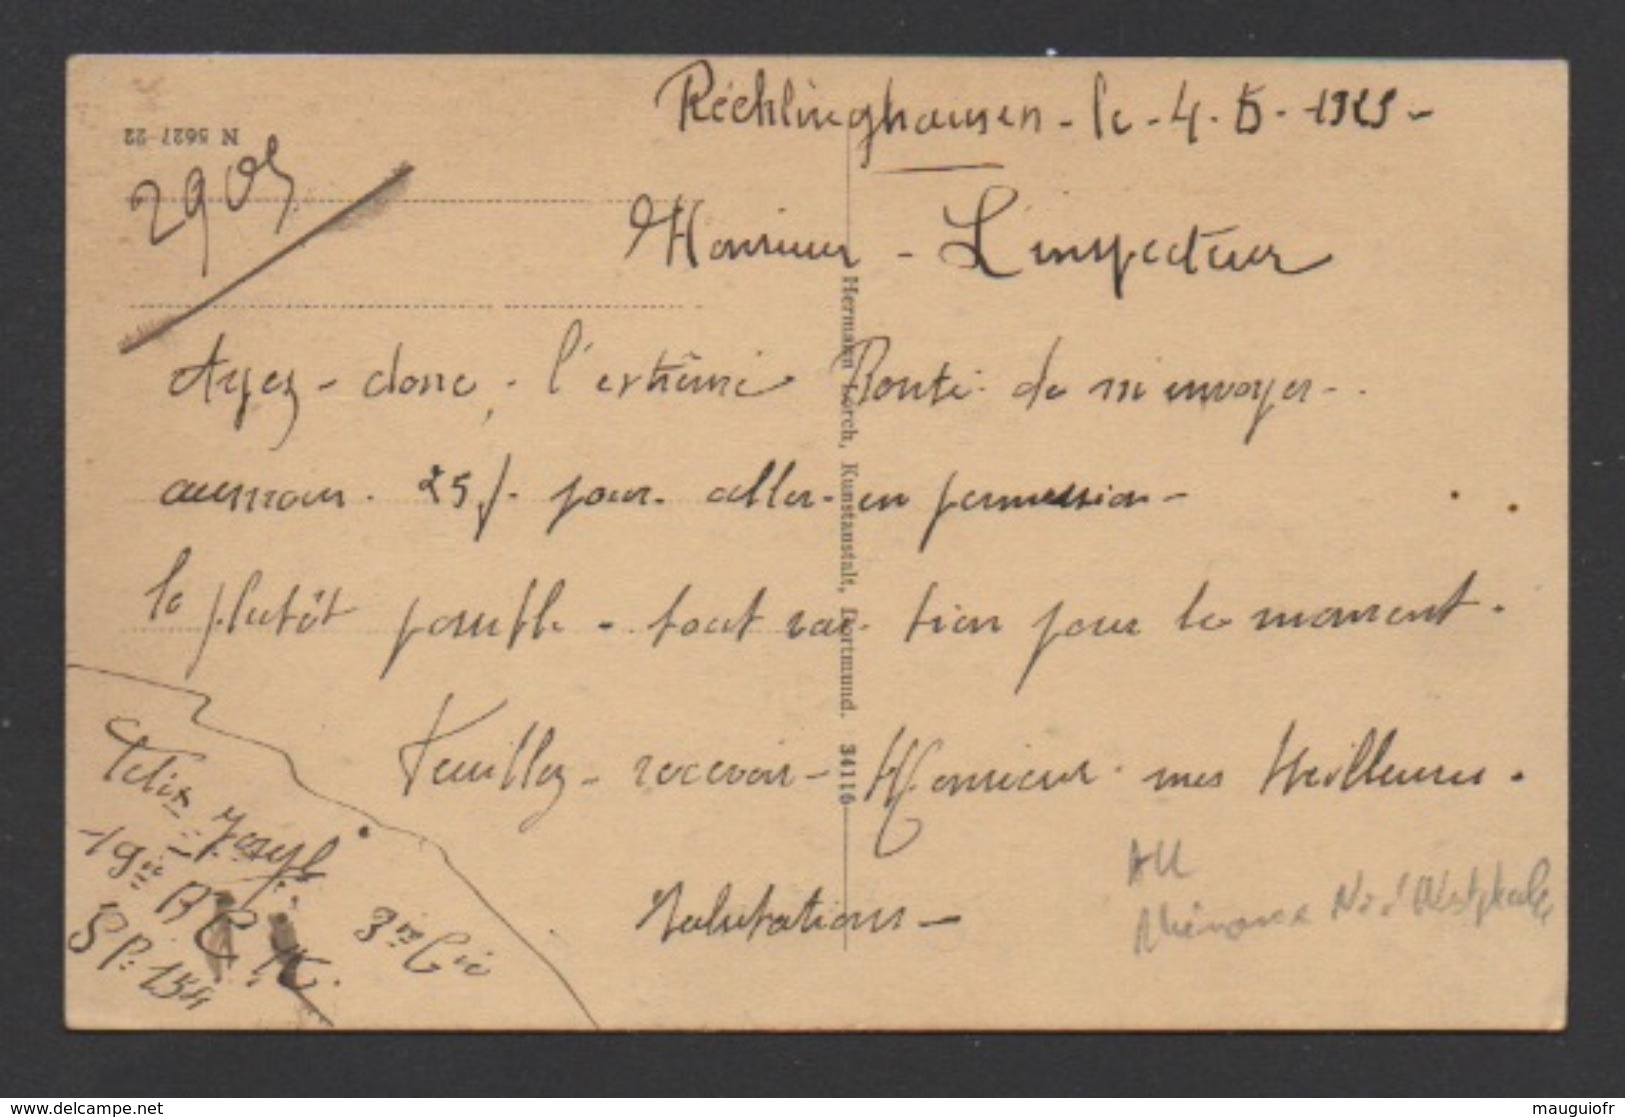 Récklinghausen - le - 4 - 5 - 1925 -
N 5627 22
2905
Monsieur - L'inspecteur
Ayez - donc, l'extrême Bonté de m'envoyer -
aumoin 25 f pour aller en permission -
le plutôt possible - tout va bien pour le moment.
Veuillez - recevoir - Monsieur mes Meilleures
Salutations -
Hermann Lorch, Kunstanstalt, Dortmund. 34116
Felix Joseph
19e B
3me Cie
SP. 154
All
Rhénanie Nord Westphalie
delcampe.net
mauguiofr